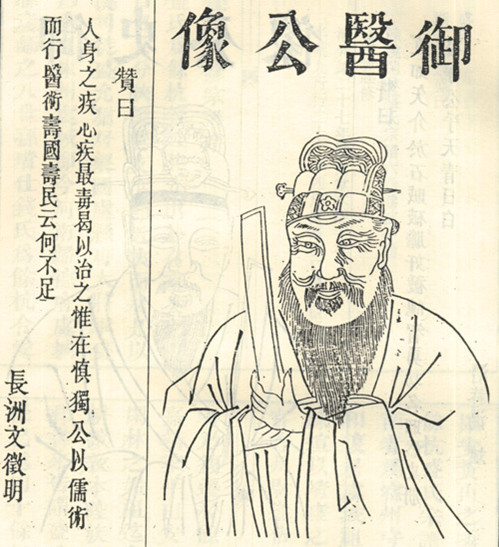 御醫公像
贊曰
人身之疾心疾最毒曷以治之惟在慎獨公以儒術
而行醫術壽國壽民云何不足
長洲文徵明